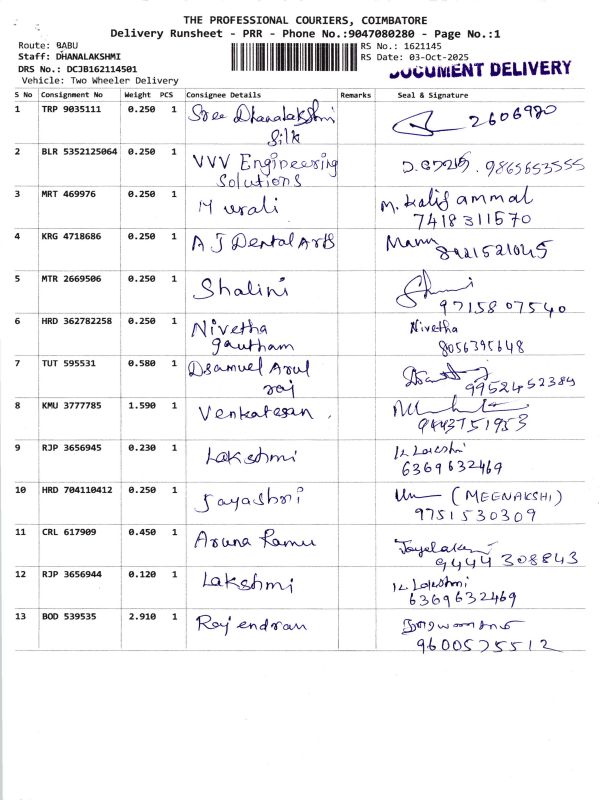 THE PROFESSIONAL COURIERS, COIMBATORE
Delivery Runsheet - PRR - Phone No.:9047080280 - Page No.:1
Route: BABU
RS No.: 1621145
Staff: DHANALAKSHMI
RS Date: 03-Oct-2025
DRS No.: DCJB162114501
DOCUMENT DELIVERY
Vehicle: Two Wheeler Delivery
S No Consignment No Weight PCS Consignee Details Remarks Seal & Signature
1 TRP 9035111 0.250 1 Sree Dhanalakshmi 2606980
Silk
2 BLR 5352125064 0.250 1 VVV Engineering 9865653555
Solutions
3 MRT 469976 0.250 1 Murali M. Kalij ammal
7418311570
4 KRG 4718686 0.250 1 A J Dental Arts Manu
8421521045
5 MTR 2669506 0.250 1 Shalini
9715807540
6 HRD 362782258 0.250 1 Nivetha Nivetha
gautham 8056395648
7 TUT 595531 0.580 1 Dsamuel Arul
raj 9952452384
8 KMU 3777785 1.590 1 Venkatesan .
9443751953
9 RJP 3656945 0.230 1 Lakshmi K Lakshmi
6369632469
10 HRD 704110412 0.250 1 Jayashri (MEENAKSHI)
9751530309
11 CRL 617909 0.450 1 Aruna Ramu Jayalakmi
9444 308843
12 RJP 3656944 0.120 1 Lakshmi K Lakshmi
6369632469
13 BOD 539535 2.910 1 Rajendran
9600575512